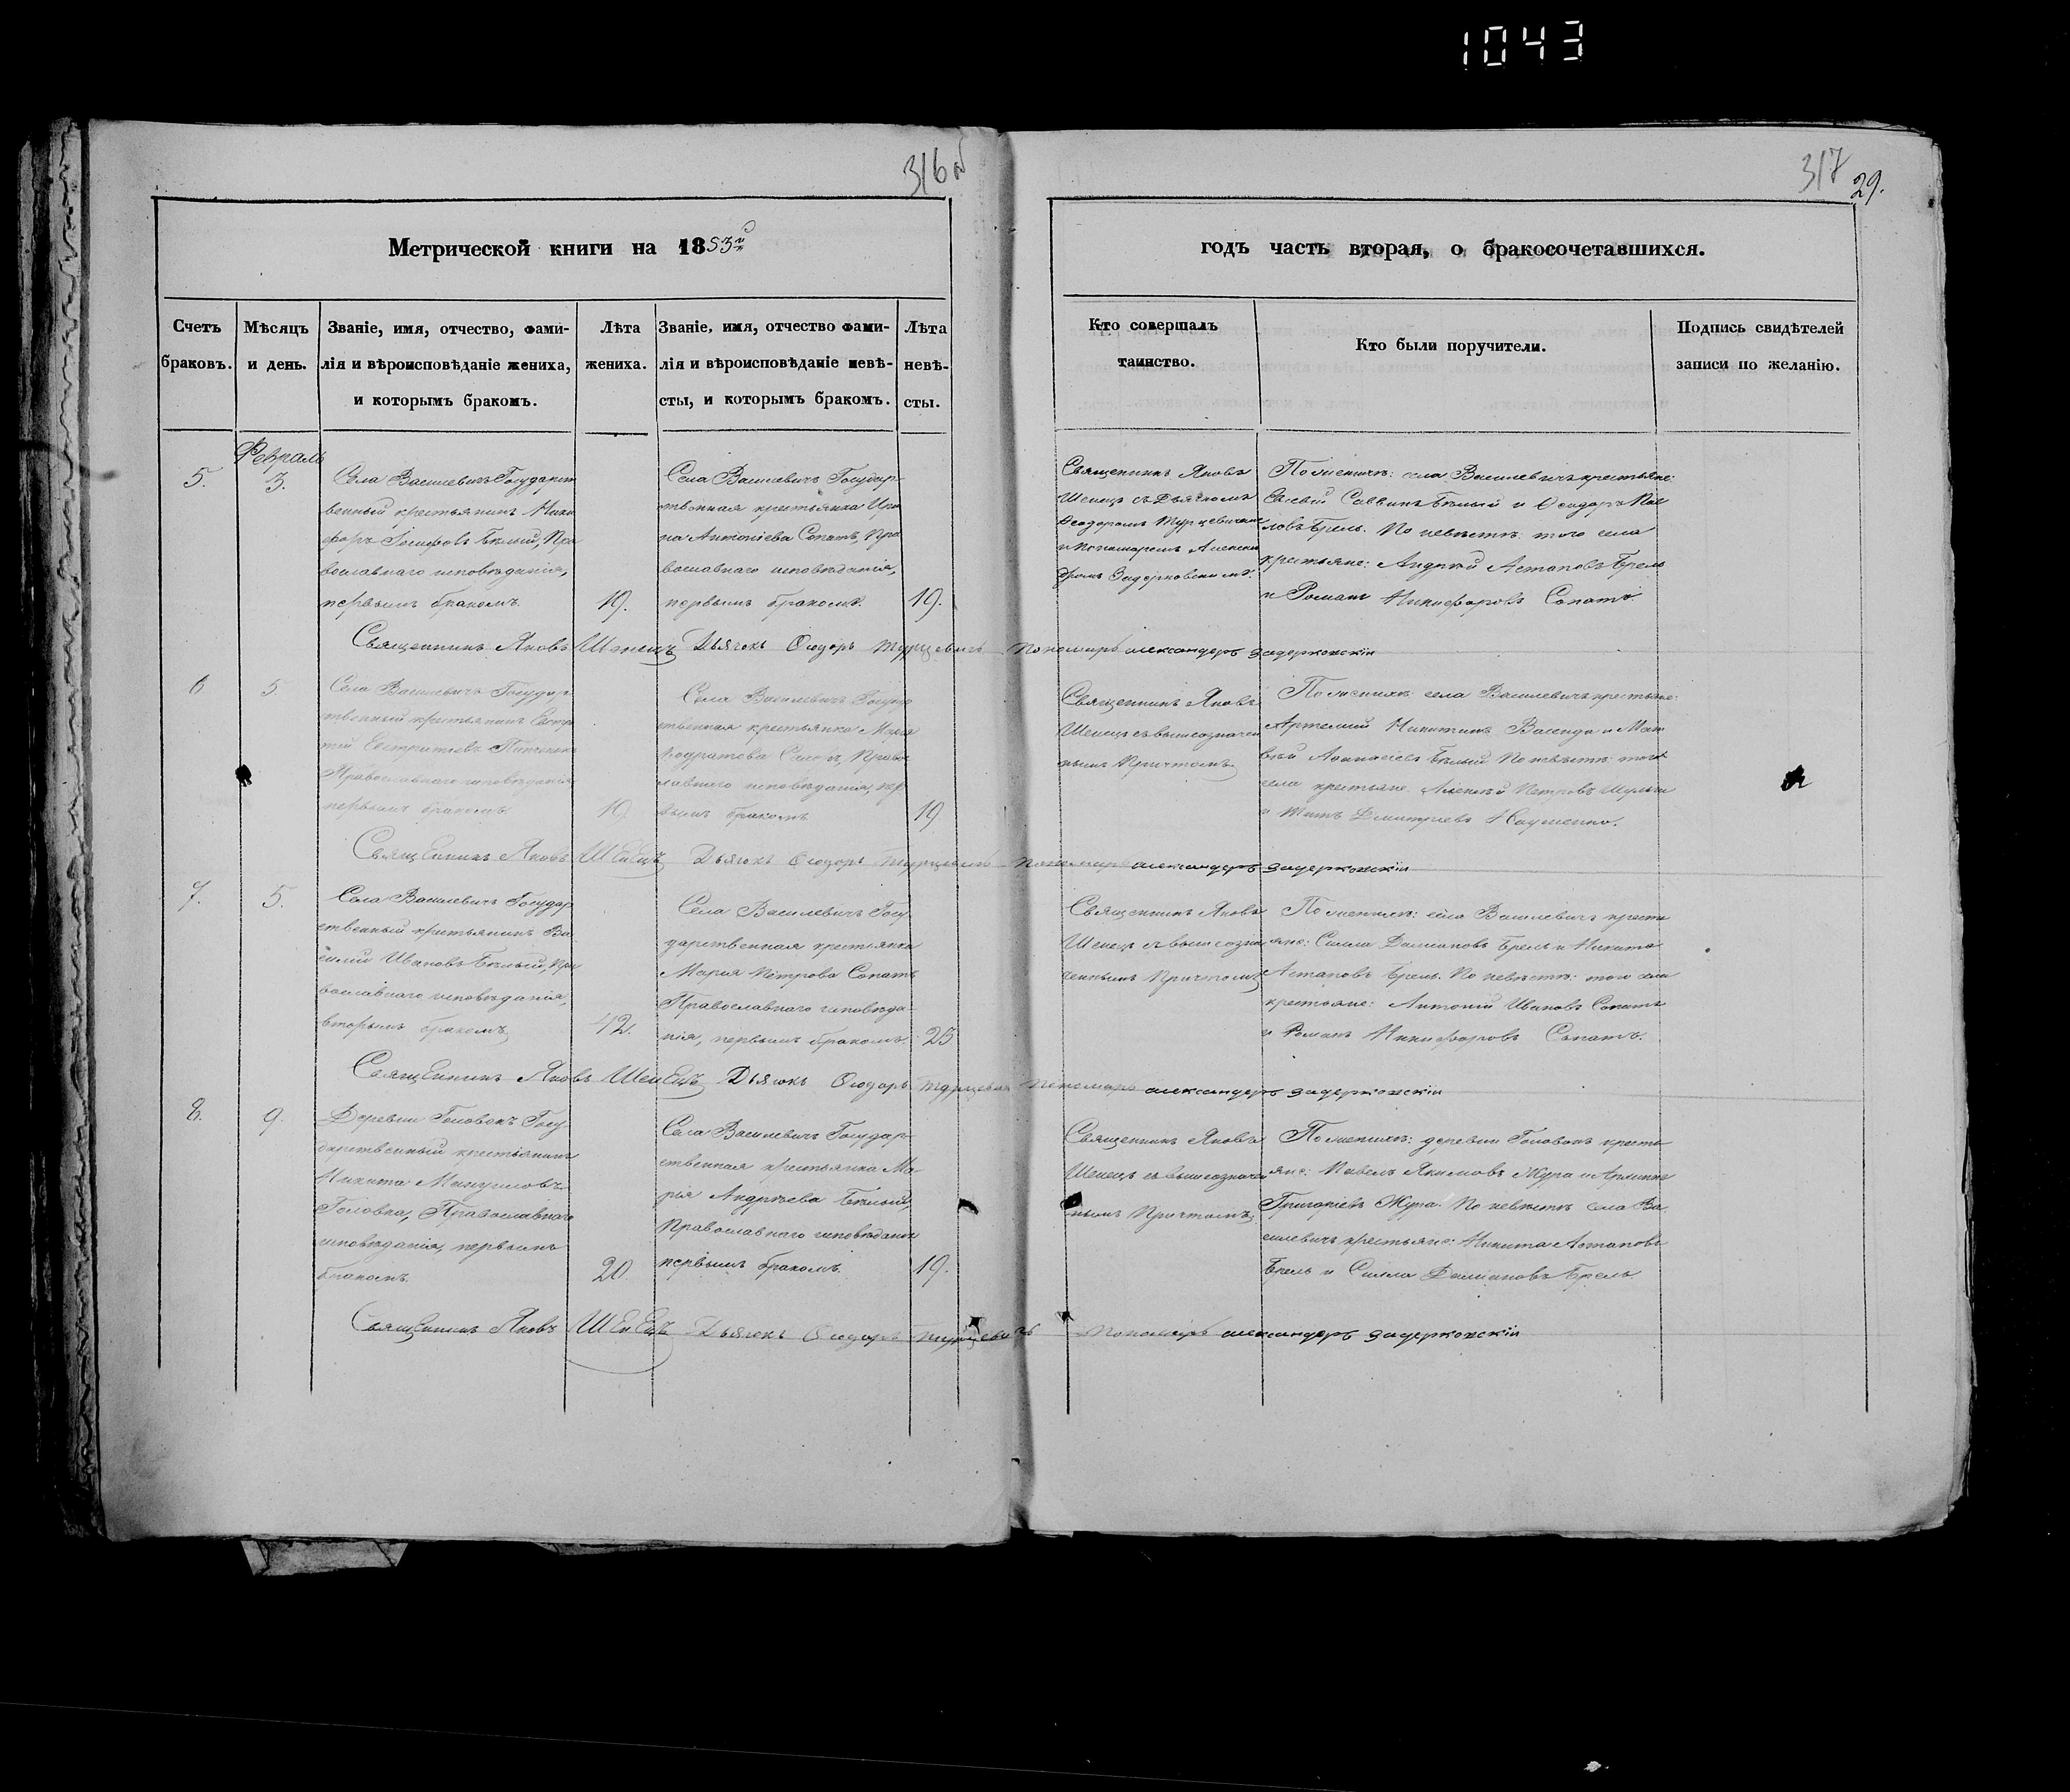 1043
316 об
317
29.
Метрической книги на 1853й
годъ часть вторая, о бракосочетавшихся.
Счетъ браковъ.
Мѣсяцъ и день.
Званіе, имя, отчество, фами-
лія и вѣроисповѣданіе жениха,
и которымъ бракомъ.
Лѣта
жениха.
Званіе, имя, отчество фами-
лія и вѣроисповѣданіе невѣ-
сты, и которымъ бракомъ.
Лѣта
невѣ-
сты.
Кто совершалъ
таинство.
Кто были поручители.
Подпись свидѣтелей
записи по желанію.
Февраль
5.
3.
Села Василевичъ Государст
венный крестьянинъ Ники
форъ Іосифовъ Бѣлый, Пра
вославнаго исповѣданія,
первымъ бракомъ.
19.
Села Василевичъ Государ-
ственная крестьянка Ири
на Антоніева Сопатъ, Пра
вославнаго исповѣданія,
первымъ бракомъ.
19.
Священникъ Яковъ
Шенецъ съ Дьячкомъ
Ѳеодоромъ Турцевичемъ
и Пономаремъ Алексан
дромъ Задерковскимъ.
По женихѣ: села Василевичъ крестьяне:
Саввинъ Бѣлый и Ѳеодоръ Пав
ловъ Брель. По невѣстѣ: того села
крестьяне: Андрей Астаповъ Брель
и Романъ Никифоровъ Сопатъ.
Священникъ Яковъ Шенецъ Дьячокъ Ѳеодоръ Турцевичъ Пономарь александеръ задерковскіи
6
5
Села Василевичъ Государ
ственный крестьянинъ
Православнаго исповѣданія
первымъ бракомъ.
19
Села Василевичъ Государ
ственная крестьянка
Правос
лавнаго исповѣданія, пер
вымъ бракомъ
19
Священникъ Яковъ
Шенецъ съ вышеозначен
нымъ Причтомъ
По женихѣ: села Василевичъ крестьяне:
Артемій Никитинъ и Мат
вѣй Бѣлый По невѣстѣ: того
села крестьяне: Алексѣй Петровъ
и Титъ Дмитріевъ Науменко.
Священникъ Яковъ Шенецъ Дьячокъ Ѳеодоръ Турцевичъ Пономарь александеръ задерковскіи
7.
5.
Села Василевичъ Государ
ственный крестьянинъ Ва
силій Ивановъ Бѣлый, Пра
вославнаго исповѣданія,
вторымъ бракомъ
42.
Села Василевичъ Госу
дарственная крестьянка
Марія Петрова Сопатъ
Православнаго исповѣда-
нія, первымъ бракомъ.
25
Священникъ Яковъ
Шенецъ съ вышеозна
ченнымъ Причтомъ
По женихѣ: села Василевичъ кресть
яне: Силла Даміановъ Брель и Никита
Астаповъ Брель. По невѣстѣ: того села
крестьяне: Антоній Ивановъ Сопатъ
и Романъ Никифоровъ Сопатъ.
Священникъ Яковъ Шенецъ Дьячокъ Ѳеодоръ Турцевичъ Пономарь александеръ задерковскіи
8.
9.
Деревни Головокъ Госу
дарственный крестьянинъ
Никита
Головка, Православнаго
исповѣданія, первымъ
бракомъ.
20.
Села Василевичъ Государ-
ственная крестьянка Ма-
рія Андрѣева Бѣлый,
Православнаго исповѣданія
первымъ бракомъ.
19.
Священникъ Яковъ
Шенецъ съ вышеозначен
нымъ Причтомъ.
По женихѣ: деревни Головокъ кресть
яне: Павелъ Якимовъ Жура и
Григоріевъ Жура. По невѣстѣ села Ва
силевичъ крестьяне: Никита Астаповъ
Брель и Силла Даміановъ Брель.
Священникъ Яковъ Шенецъ Дьячокъ Ѳеодоръ Турцевичъ Пономарь александеръ задерковскіи